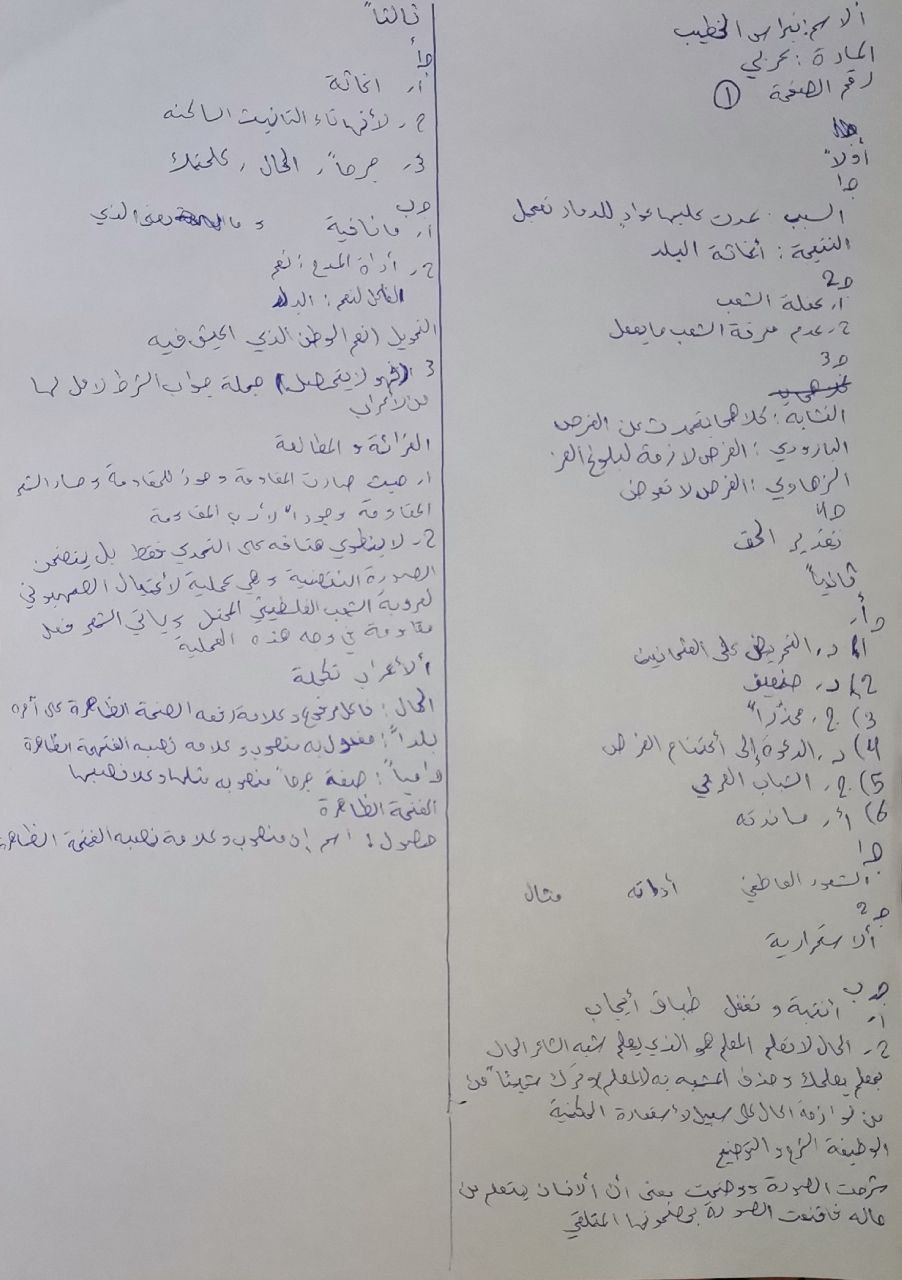 ألاسم: نبراس الخطيب
المادة: عربي
رقم الصفحة ①
أولاً
جـ1
السبب: عدت عليها عوادٍ للدمار تعجل
النتيجة: أغاثة البلد
جـ2
1ـ غفلة الشعب
2ـ عدم معرفة الشعب ما يفعل
جـ3
التشابه: كلاهما تحدث عن الفرص
البارودي: الفرص لازمة لبلوغ العز
الزهاوي: الفرص لا تعوض
جـ4
تقدير الحق
ثانياً
جـ أ ـ
1) د. التحريض على العثمانيين
2) د.
3) ج. محذّراً
4) د. الدعوة إلى أغتنام الفرص
5) ج. الشباب العربي
6) أ. ساندته
جـ1
الشعور العاطفي أدواته مثال
جـ2
ألاستمرارية
جـ ب
1ـ أنتبة و تغفل طباق أيجاب
2ـ الحال لا تعلم المعلم هو الذي يعلم شبه الشاعر الحال
بمعلم يعلمك وحذف المشبه به (المعلم) وترك شيئاً من
من لوازمة الحال على سبيل لأستعارة المكنية
الوظيفة الشرح والتوضيح
شرحت الصورة ووضحت معنى أن ألانسان يتعلم من
حاله فاقنعت الصورة بمضمونها المتلقي
ثالثاً
جـ أ
1ـ اغاثة
2ـ لأنها تاء التانيث الساكنه
3ـ جرحاً، الحال، علمتك
جـ ب
1ـ ما نافية و ما بمعنى الذي
2ـ أداة المدح: نعم
الفاعل لنعم: البلد
التحويل (نعم الوطن الذي اعيش فيه
3 (فهو لا يتحصل) جملة جواب الشرط لا محل لها
من الأعراب
القرائة و المطالعة
1ـ حيث صارت المقاومة وجوداً للمقاومة وصار الشعر
المقاومة وجوداً لأدب المقاومة
2ـ لا ينطوي هتافه على التحدي فقط بل يتضمن
الصورة النقيضة وهي عملية لأحتلال الصهيوني
لعروبة الشعب الفلسطيني المحتل وياتي الشعر فعل
مقاومة في وجه هذه العملية
ألأعراب تكملة
الحال: فاعل مرفوع وعلامة رفعه الضمة الظاهرة على أخره
بلداً: مفعول به منصوب وعلامه نصبه الفتحة الظاهرة
دامياً: صفة جرحاً منصوبه مثلها وعلا نصبها
الفتحة الظاهرة
حصول: اسم إن منصوب وعلامة نصبه الفتحة الظاهرة